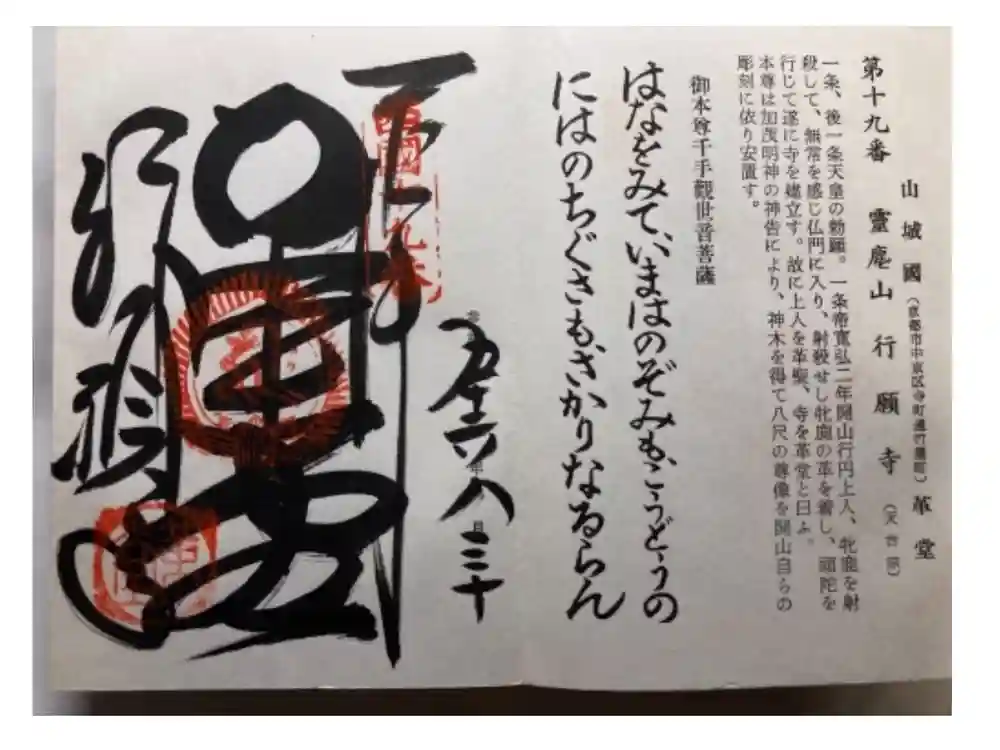 山城國（京都市中京区寺町通竹屋町）革堂
第十九番 靈麀山 行願寺（天台宗）
一条、後一条天皇の勅願。一条帝寛弘二年開山行円上人、牝鹿を射
殺して、無常を感じ仏門に入り、射殺せし牝鹿の革を着し、頭陀を
行じて遂に寺を建立す。故に上人を革聖、寺を革堂と曰ふ。
本尊は加茂明神の神告により、神木を得て八尺の尊像を開山自らの
彫刻に依り安置す。
御本尊千手觀世音菩薩
はなをみて、いまはのぞみも、こうどうの
にはのちぐさも、さかりなるらん
年 八 月 三十
革堂
行願寺